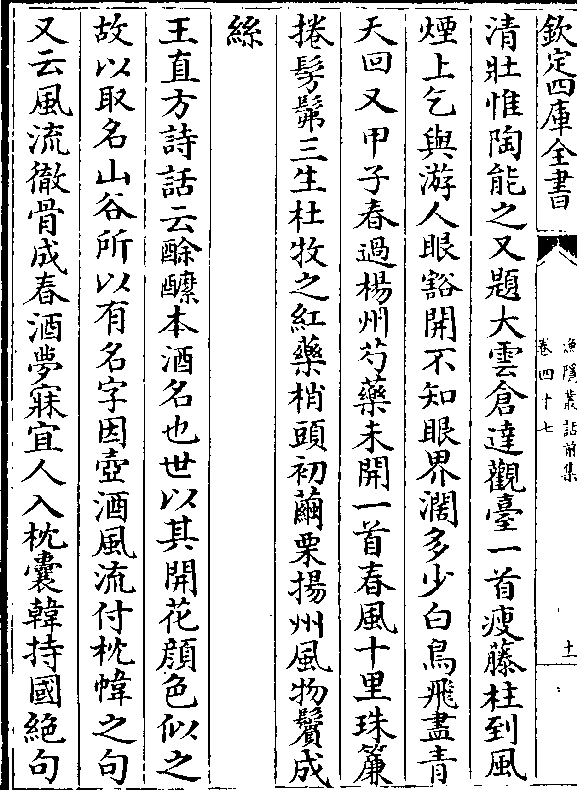 欽定四庫全書
漁隱叢話前集
卷四十七
十一
清壯惟陶能之又題大雲倉達觀臺一首瘦藤柱到風
煙上乞與游人眼豁開不知眼界濶多少白鳥飛盡青
天回又甲子春過楊州芍藥未開一首春風十里珠簾
捲髣髴三生杜牧之紅藥梢頭初繭栗揚州風物鬢成
絲
王直方詩話云酴醿本酒名也世以其開花顔色似之
故以取名山谷所以有名字因壺酒風流付枕幃之句
又云風流徹骨成春酒夢寐宜人入枕囊韓持國絶句